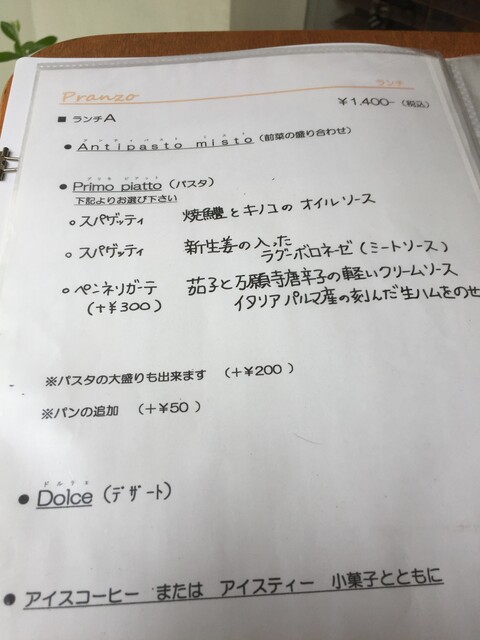 Pranzo
ランチ
■ ランチA
￥1,400-（税込）
アンティパスト ミスト
● Antipasto misto（前菜の盛り合わせ）
プリモ ピアット
● Primo piatto（パスタ）
下記よりお選び下さい
○ スパゲッティ 焼鱧とキノコの オイルソース
○ スパゲッティ 新生姜の入った
ラグーボロネーゼ（ミートソース）
○ ペンネリガーテ 茄子と万願寺唐辛子の軽いクリームソース
（＋￥300） イタリアパルマ産の刻んだ生ハムをのせ
※パスタの大盛りも出来ます （＋￥200 ）
※パンの追加 （＋￥50 ）
ドルチェ
● Dolce（ﾃﾞｻﾞｰﾄ）
● アイスコーヒー または アイスティー 小菓子とともに